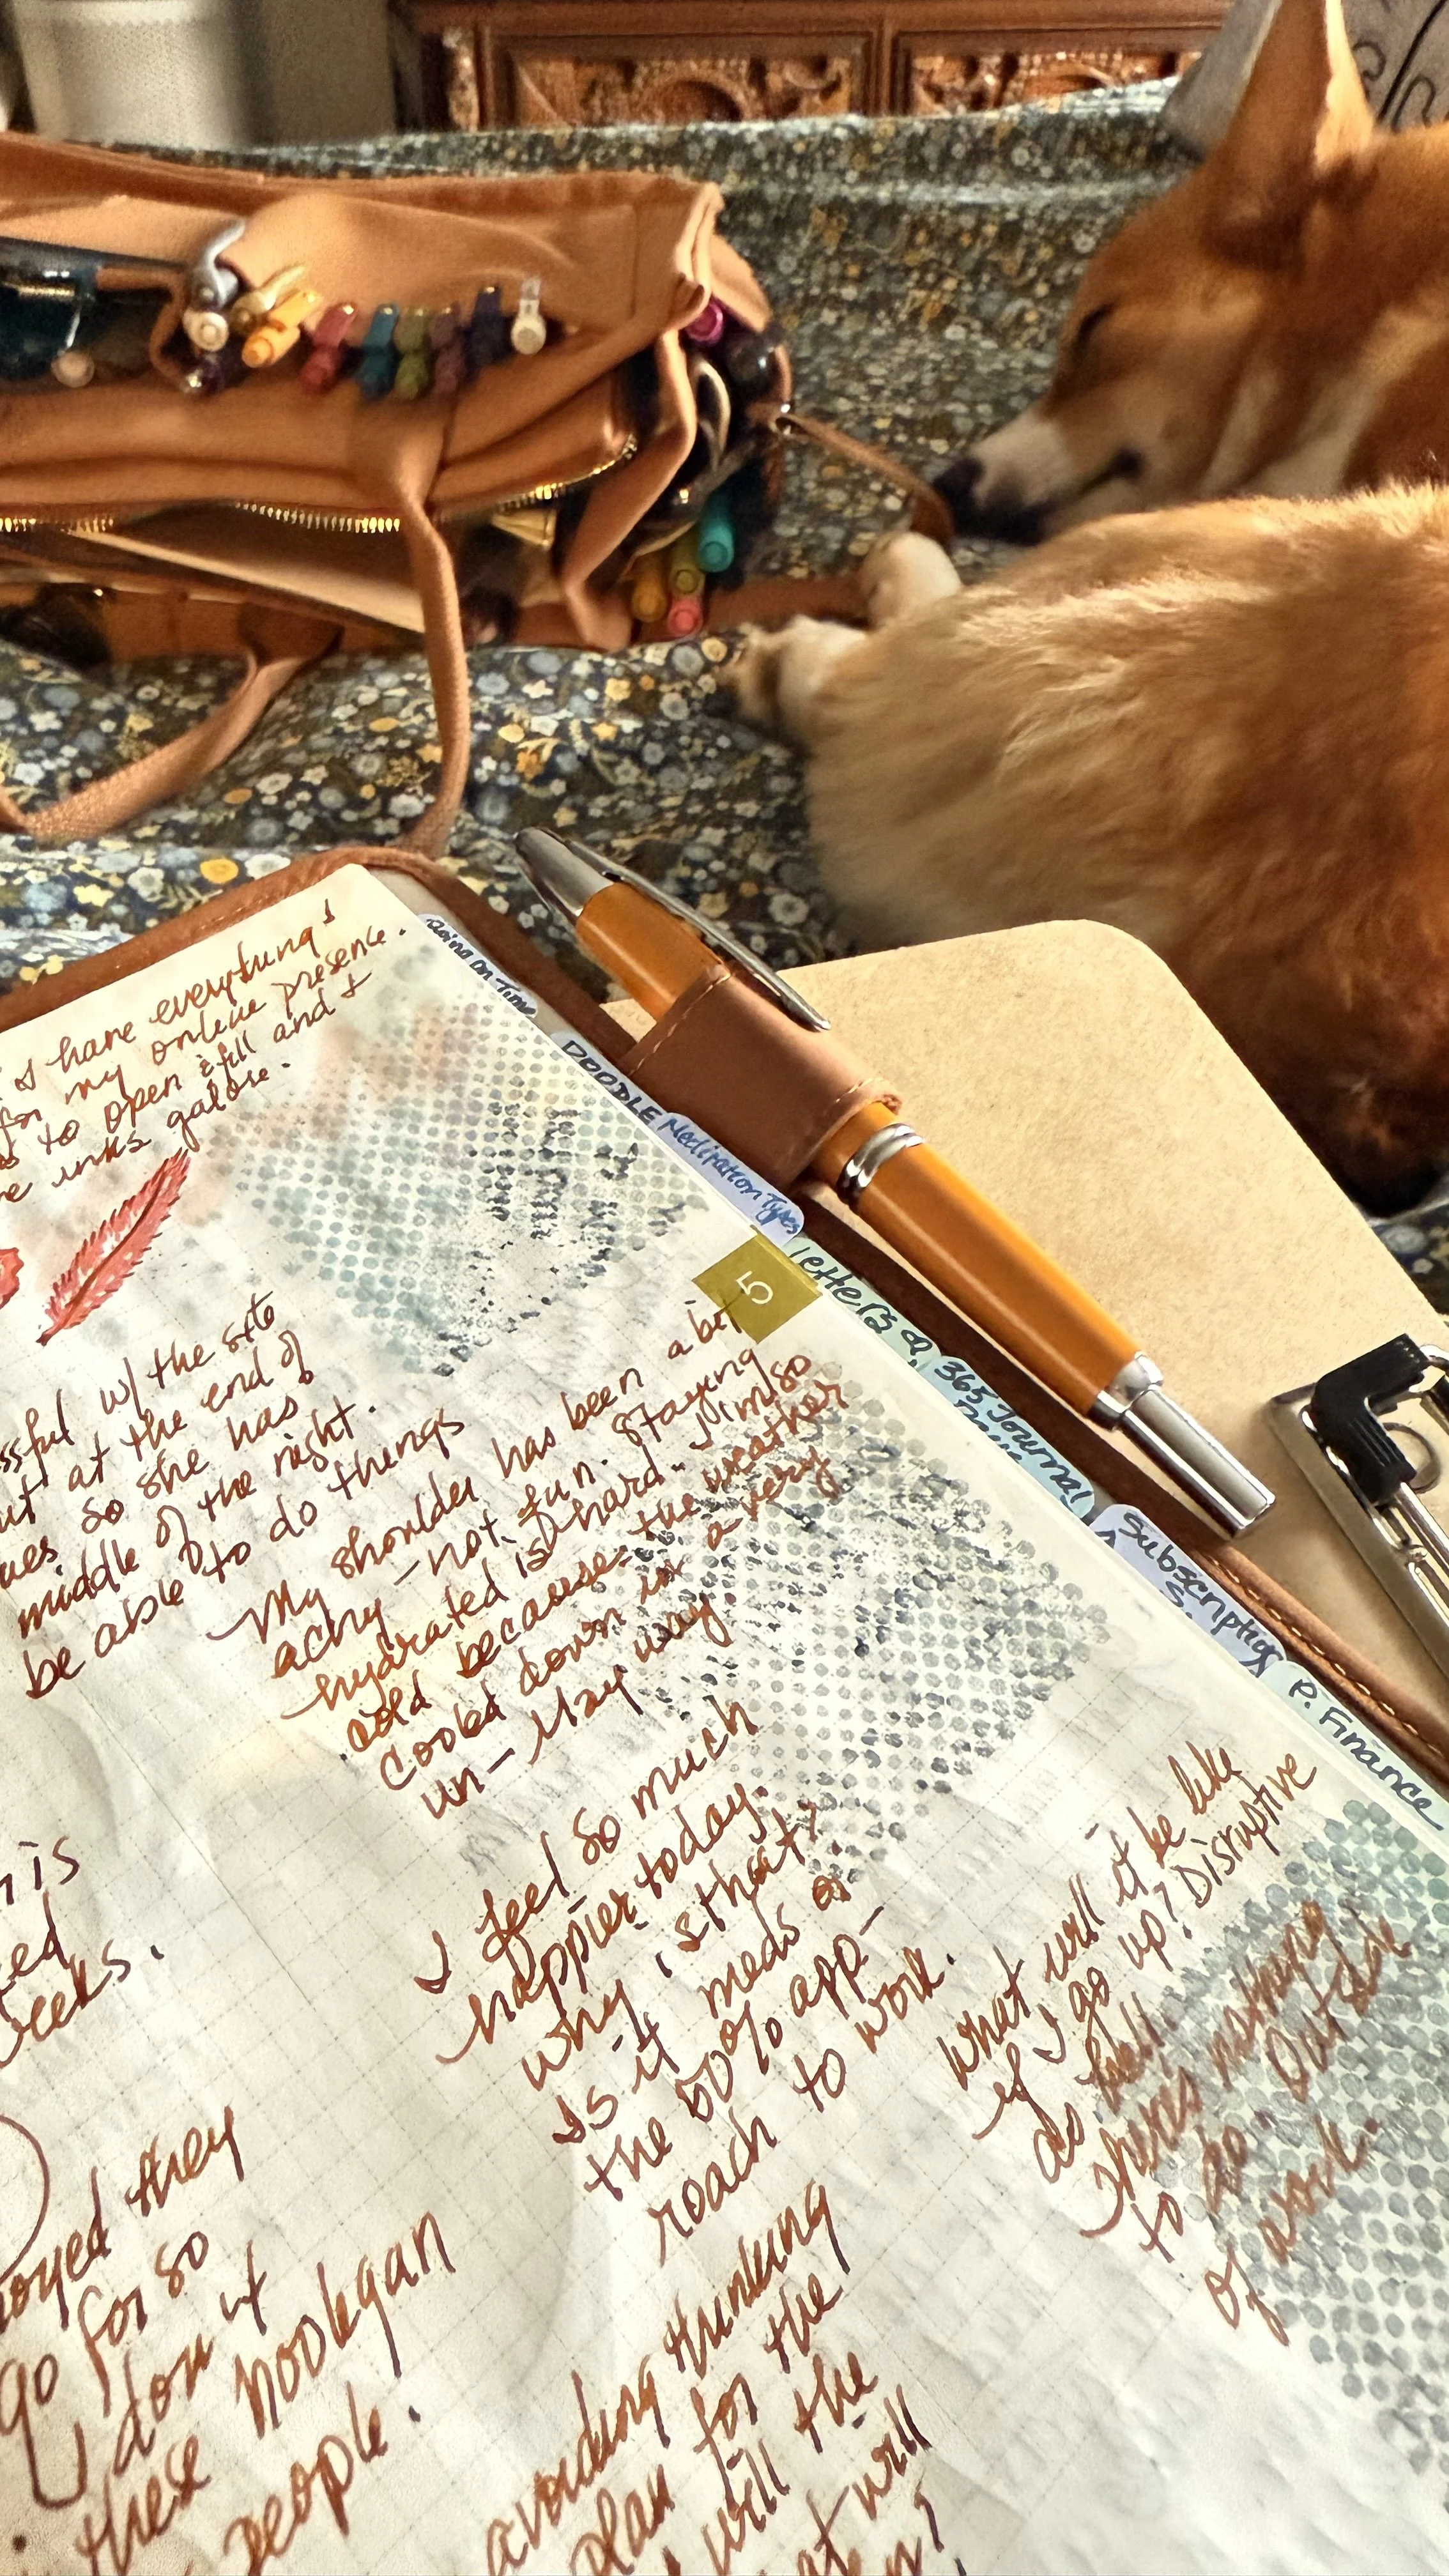 I have everything I
for my online presence.
to open & fill and t
inks galore.
w/ the site
at the end of
so she has
middle of the night.
be able to do things
My shoulder has been a bit
achy – not fun. Staying
hydrated is hard. I'm so
cold because the weather
cooled down in a very
un-May way.
I feel so much
happier today.
why is that?
Is it meds or
the 50% app-
roach to work.
what will it be like
if I go up? Disruptive
as hell.
There's nothing
to do outside
of work.
is
ed
eeks.
oyed they
go for so
don't
these hooligan
people.
avoiding thinking
plan for the
will the
will
5
Going on Time
DOODLE
Meditation Types
letters
365 Journal
Subscription
P. Finance